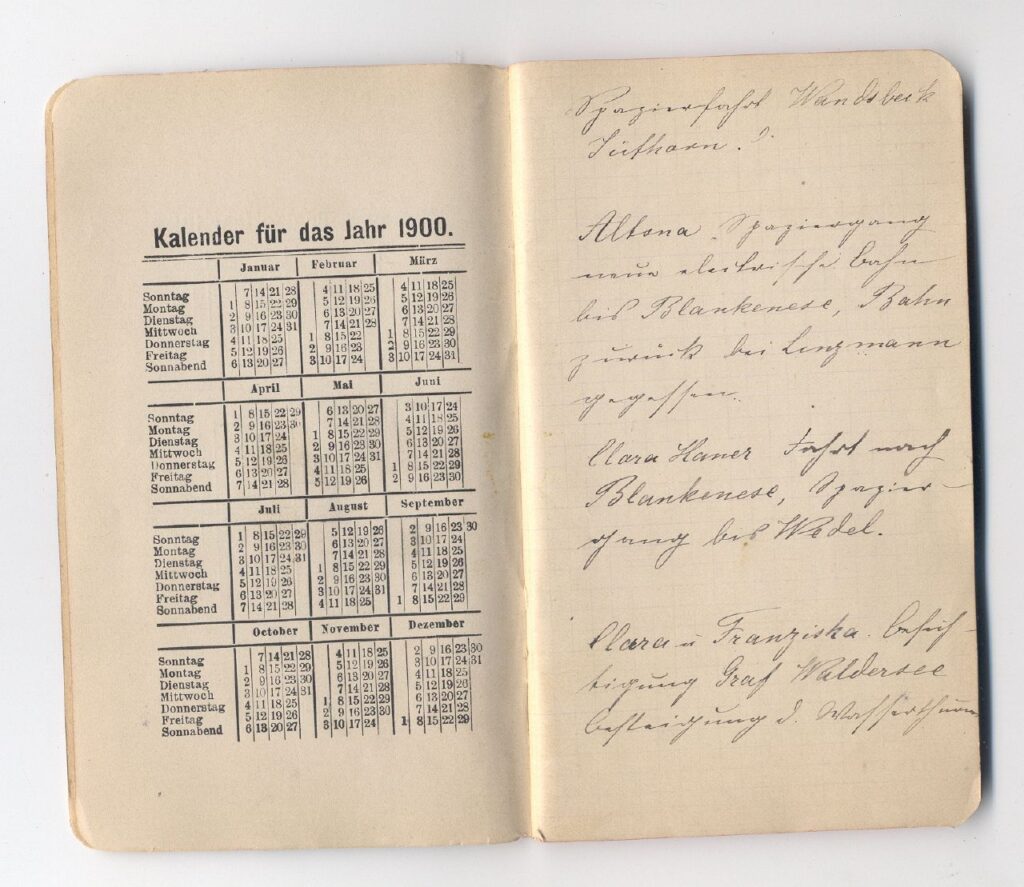 Kalender für das Jahr 1900.
Januar Februar März
Sonntag 7 14 21 28 4 11 18 25 4 11 18 25
Montag 1 8 15 22 29 5 12 19 26 5 12 19 26
Dienstag 2 9 16 23 30 6 13 20 27 6 13 20 27
Mittwoch 3 10 17 24 31 7 14 21 28 7 14 21 28
Donnerstag 4 11 18 25 1 8 15 22 1 8 15 22 29
Freitag 5 12 19 26 2 9 16 23 2 9 16 23 30
Sonnabend 6 13 20 27 3 10 17 24 3 10 17 24 31
April Mai Juni
Sonntag 1 8 15 22 29 6 13 20 27 3 10 17 24
Montag 2 9 16 23 30 7 14 21 28 4 11 18 25
Dienstag 3 10 17 24 1 8 15 22 29 5 12 19 26
Mittwoch 4 11 18 25 2 9 16 23 30 6 13 20 27
Donnerstag 5 12 19 26 3 10 17 24 31 7 14 21 28
Freitag 6 13 20 27 4 11 18 25 1 8 15 22 29
Sonnabend 7 14 21 28 5 12 19 26 2 9 16 23 30
Juli August September
Sonntag 1 8 15 22 29 5 12 19 26 2 9 16 23 30
Montag 2 9 16 23 30 6 13 20 27 3 10 17 24
Dienstag 3 10 17 24 31 7 14 21 28 4 11 18 25
Mittwoch 4 11 18 25 1 8 15 22 29 5 12 19 26
Donnerstag 5 12 19 26 2 9 16 23 30 6 13 20 27
Freitag 6 13 20 27 3 10 17 24 31 7 14 21 28
Sonnabend 7 14 21 28 4 11 18 25 1 8 15 22 29
October November Dezember
Sonntag 7 14 21 28 4 11 18 25 2 9 16 23 30
Montag 1 8 15 22 29 5 12 19 26 3 10 17 24 31
Dienstag 2 9 16 23 30 6 13 20 27 4 11 18 25
Mittwoch 3 10 17 24 31 7 14 21 28 5 12 19 26
Donnerstag 4 11 18 25 1 8 15 22 29 6 13 20 27
Freitag 5 12 19 26 2 9 16 23 30 7 14 21 28
Sonnabend 6 13 20 27 3 10 17 24 1 8 15 22 29
Spazierfahrt Wandsbeck
Jüthorn.
Altona. Spaziergang
neue electrische Bahn
bis Blankenese, Bahn
zurück bei Lenzmann
gegessen.
Clara Haner Fahrt nach
Blankenese, Spazier-
gang bis Wedel.
Clara u Franziska. Besich-
tigung Graf Waldersee
Besteigung d. Wasserthurm